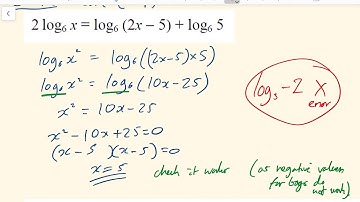 2 log₆ x = log₆ (2x − 5) + log₆ 5
log₆ x² = log₆((2x-5)×5)
log₆ x² = log₆(10x-25)
x² = 10x-25
x²-10x+25=0
(x-5)(x-5)=0
x=5
check it works
(as negative values
for logs do
not work)
log₅-2 X
error